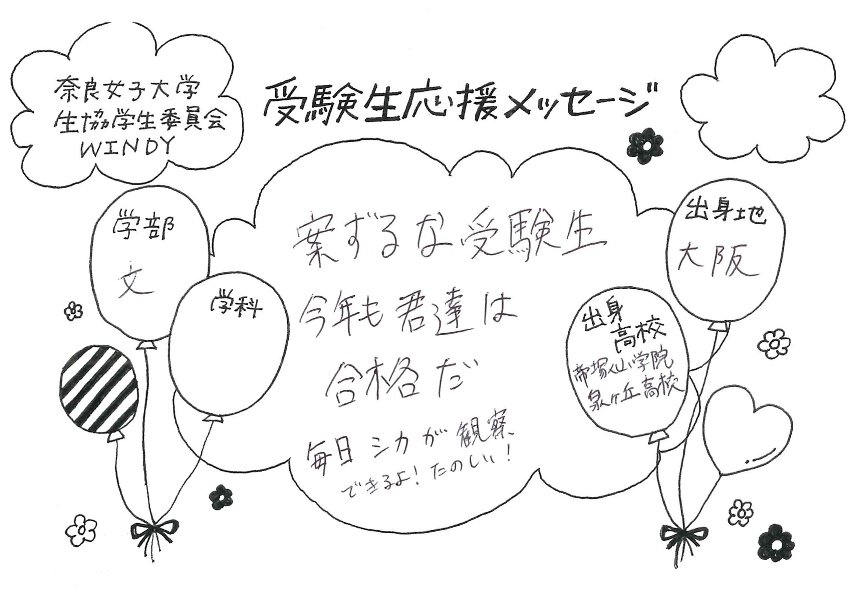 奈良女子大学
生協学生委員会
WINDY
受験生応援メッセージ
学部
文
学科
案ずるな受験生
今年も君達は
合格だ
毎日シカが観察
できるよ!たのしい!
出身地
大阪
出身
高校
帝塚山学院
泉ヶ丘高校